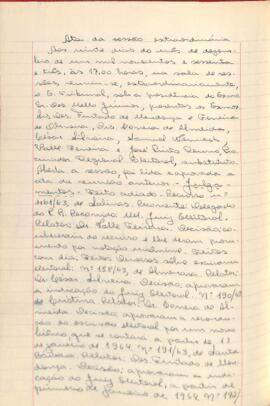 Ata da sessão extraordinária
Aos vinte dias do mês de dezem-
bro de um mil novecentos e sessenta
e três, às 17,00 horas, na sala de ses-
sões, reuniu-se, extraordinariamente,
o E. Tribunal, sob a presidência do Exmo
Sr. Des. Mello Júnior, presentes os Exmos
Srs. Des. Furtado de Mendonça e Ferreira
de Oliveira, Drs. Correia de Almeida,
César Silveira,
Valle Ferreira e José Pinto
Regional Eleitoral, substituto.
Aberta a sessão, foi lida e aprovada a
ata da reunião anterior. - Julga-
mentos. - Feito adiado: Recurso nº
de Salinas. Recorrente: Delegado
do P.R. Recorrido: MM. Juiz Eleitoral.
Relator: Dr. Valle Ferreira. Decisão: co-
nheceram do recurso e lhe deram provi-
mento por votação unânime. Feitos
com dia: Feitos diversos sobre escrivania
eleitoral: Nº 188/63, de Almenara. Relator:
Dr. César Silveira. Decisão: aprovaram
a indicação do Juiz Eleitoral. Nº 190/63
de Cristina. Relator: Dr. Correia de Al-
meida. Decisão: aprovaram a recondu-
ção do escrivão eleitoral por um novo
biênio, que se contará a partir de 11
de janeiro de 1964. Nº 191/63, de Santa
Bárbara. Relator: Des. Furtado de Men-
donça. Decisão: aprovaram a indi-
cação do Juiz Eleitoral, a partir de
primeiro de janeiro de 1964. Nº 192/